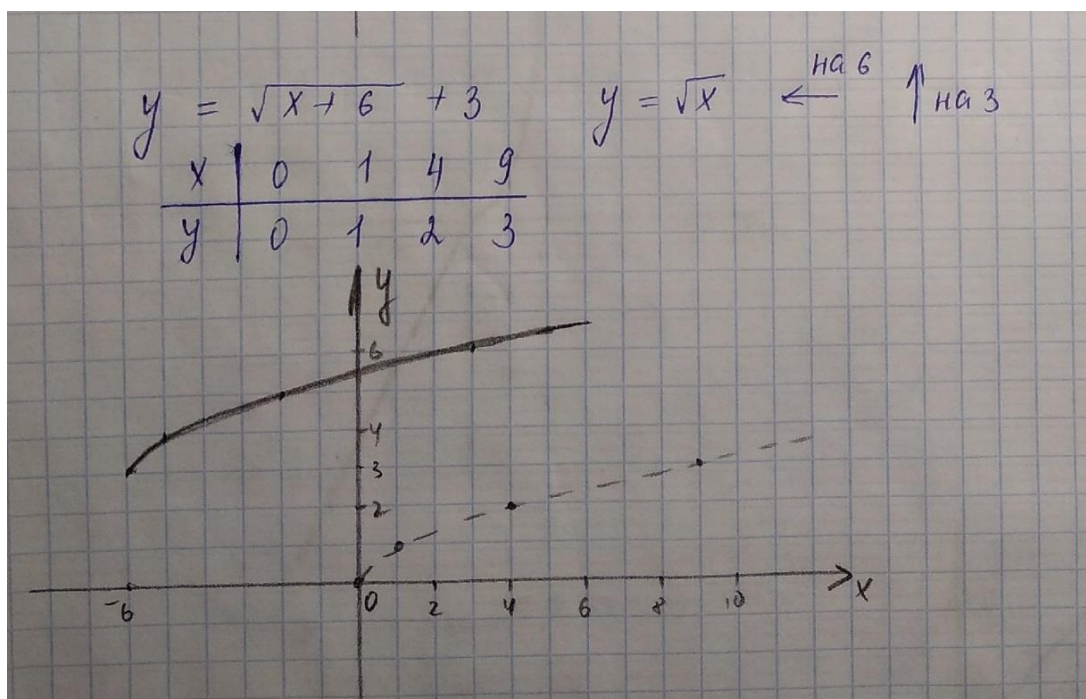 y = √(x + 6) + 3 y = √x ← на 6 ↑ на 3
x | 0 1 4 9
y | 0 1 2 3
y
6
4
3
2
-6 0 2 4 6 8 10 x